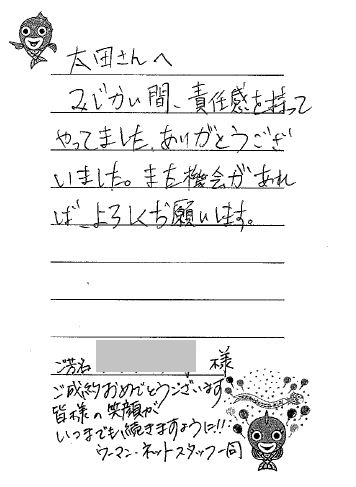 太田さんへ
みじかい間、責任感を持って
やってました。ありがとうござ
いました。また機会があれ
ば よろしくお願いします。
ご芳名 様
ご成約おめでとうございます
皆様の笑顔が
いつまでも続きますように!!
ウーマン・ネットスタッフ一同